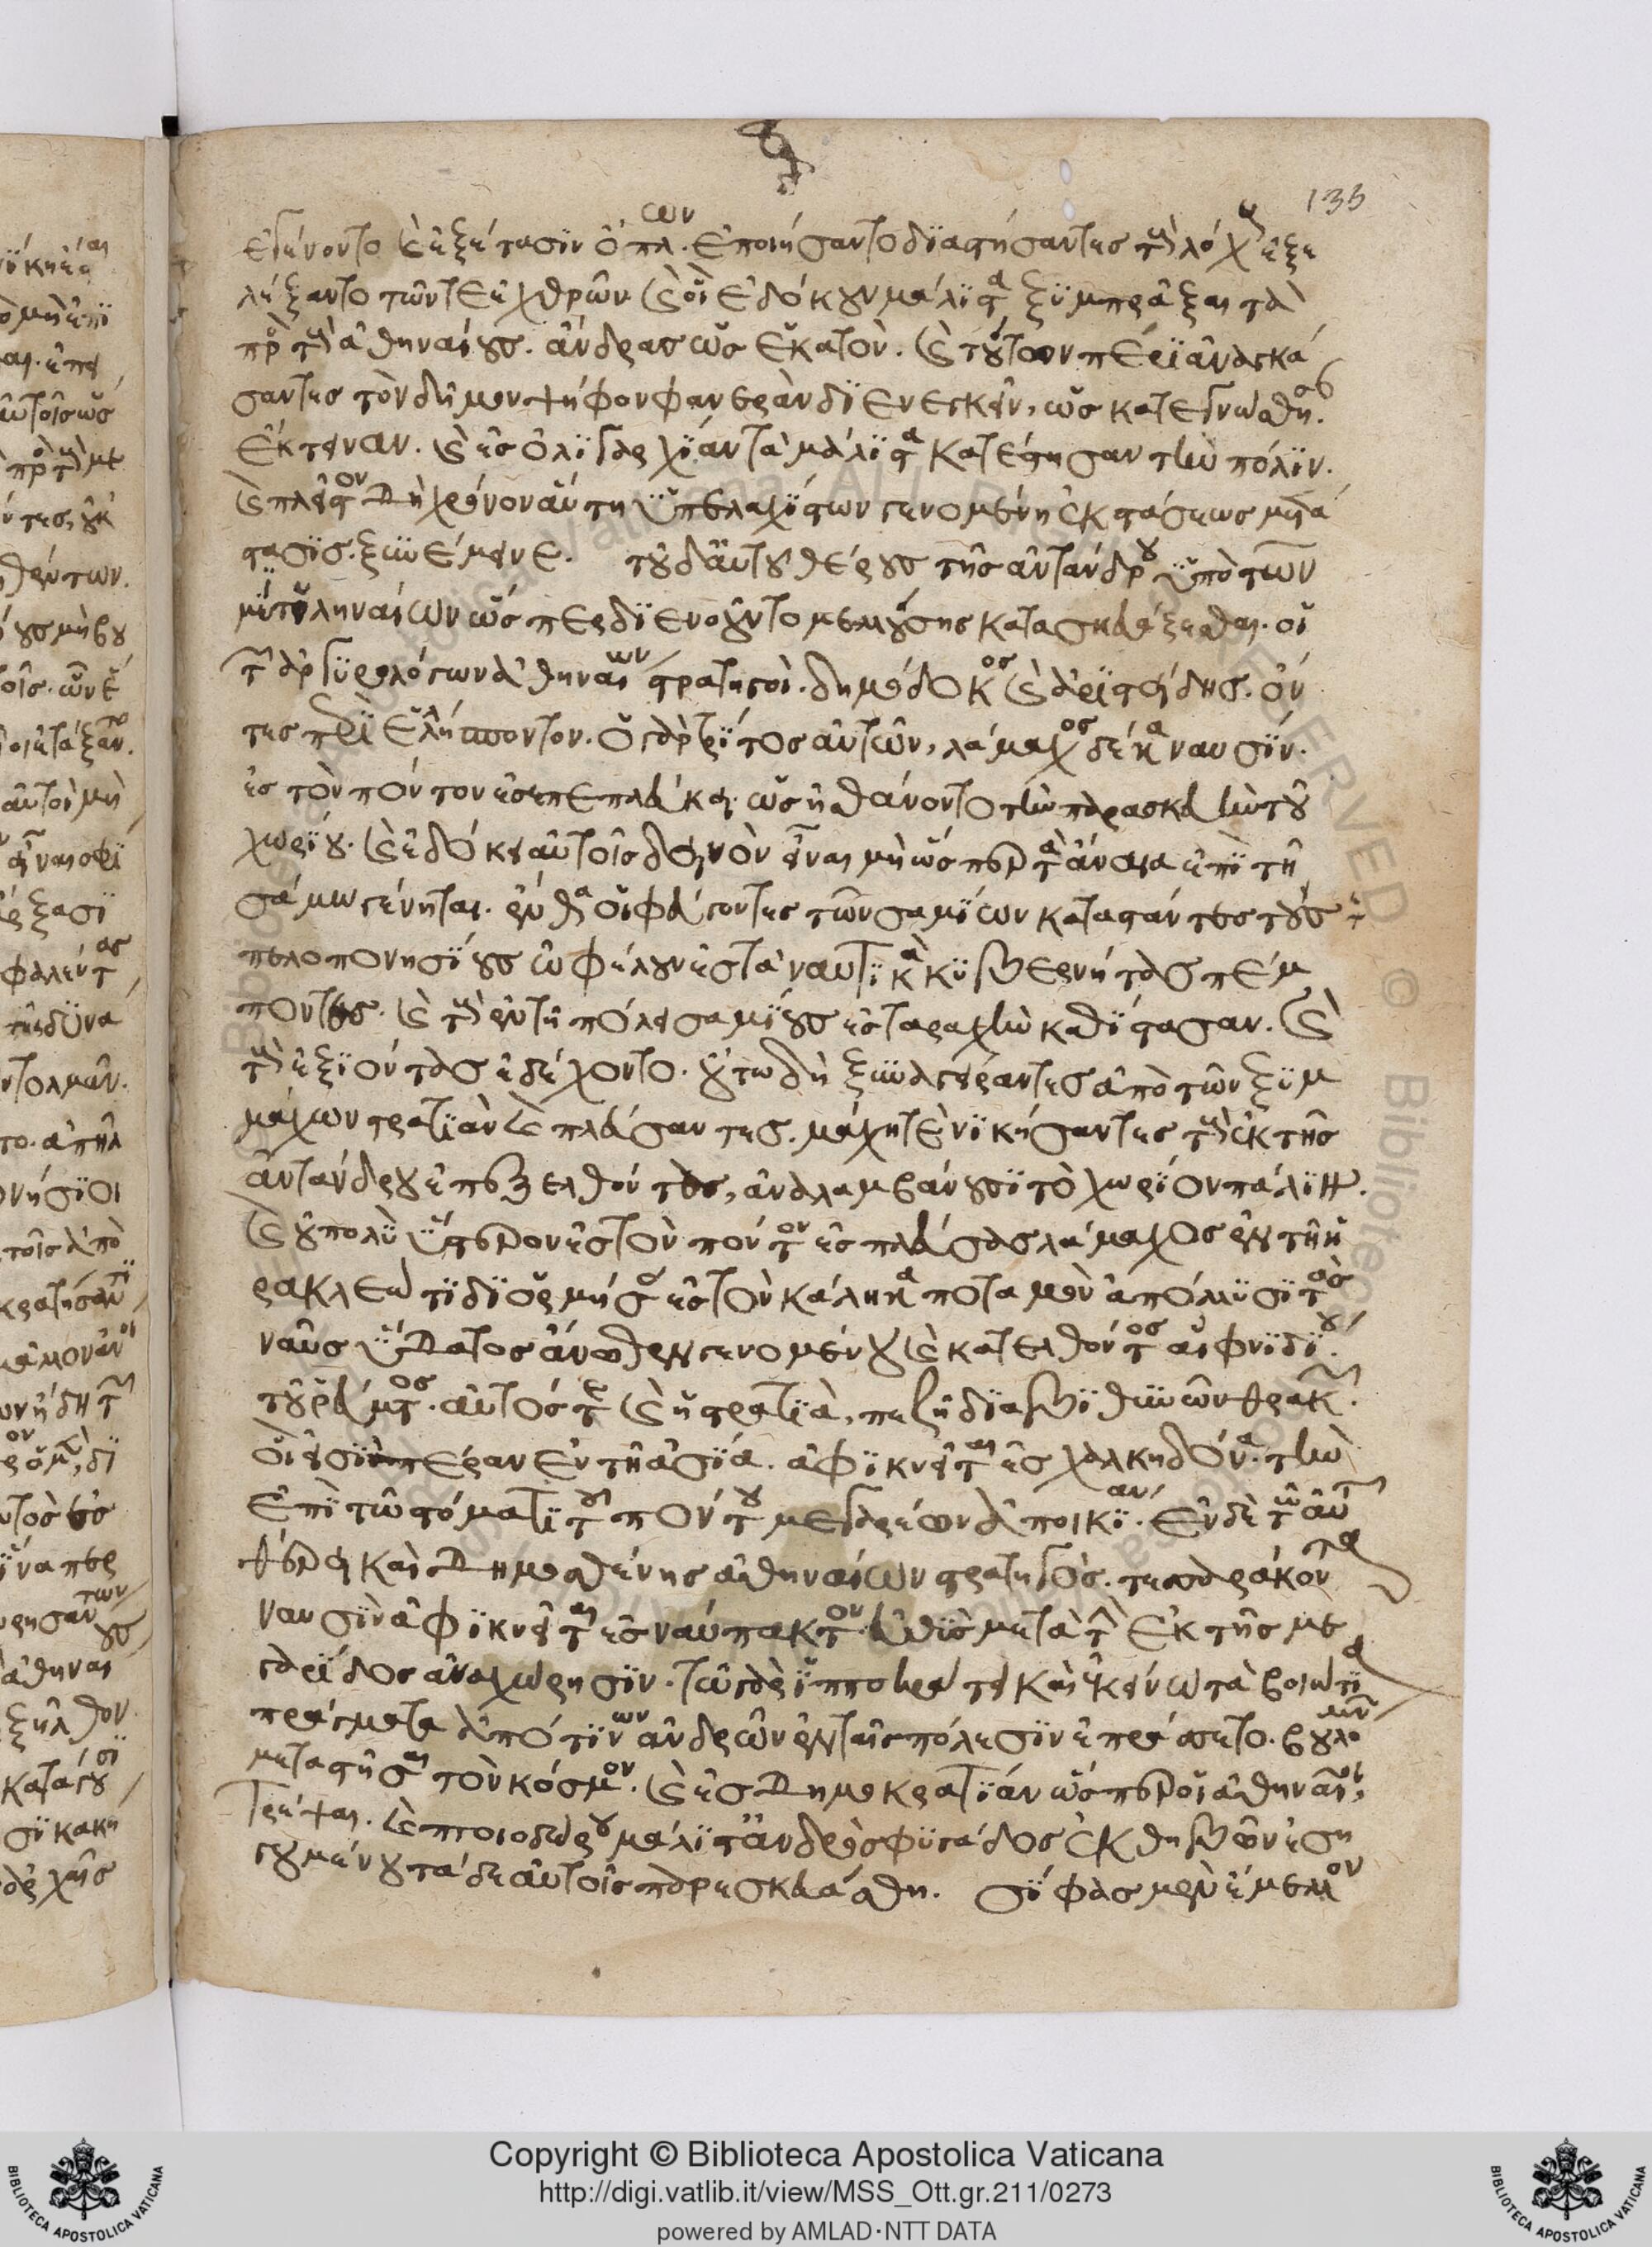 135
ἐγένοντο καὶ ἐξέτασιν ὅπλων. ἐποιήσαντο διαστήσαντες τοὺς λόχους ἐξε
λέξαντο τῶν τε ἐχθρῶν καὶ οἳ ἐδόκουν μάλιστα ξυμπρᾶξαι τὰ
πρὸς τοὺς ἀθηναίους. ἄνδρας ὡς ἑκατόν. καὶ τούτων πέρι ἀναγκά
σαντες τὸν δῆμον ψῆφον φανερὰν διενεγκεῖν, ὡς κατεγνώσθησαν
ἔκτειναν. καὶ ἐς ὀλιγαρχίαν τὰ μάλιστα κατέστησαν τὴν πόλιν.
καὶ πλεῖστον δὴ χρόνον αὕτη ὑπ' ἐλαχίστων γενομένη ἐκ στάσεως μετά
στασις ξυνέμεινε. τοῦ δ' αὐτοῦ θέρους τῆς ἀντάνδρου ὑπὸ τῶν
μιτυληναίων ὥσπερ διενοοῦντο μελλούσης κατασκευάζεσθαι. οἱ
τῶν ἀργυρολόγων ἀθηναίων στρατηγοί. δημόδοκος καὶ ἀριστείδης. ὄν
τες περὶ ἑλλήσποντον. ὁ γὰρ τρίτος αὐτῶν, λάμαχος δέκα ναυσίν.
ἐς τὸν πόντον ἐσεπεπλεύκει. ὡς ᾐσθάνοντο τὴν παρασκευὴν τοῦ
χωρίου. καὶ ἐδόκει αὐτοῖς δεινὸν εἶναι μὴ ὥσπερ τὰ ἄναια ἐπὶ τῇ
σάμω γένηται. ἔνθα οἱ φεύγοντες τῶν σαμίων καταστάντες τούς τε
πελοπονησίους ὠφέλουν ἐς τὰ ναυτικὰ κυβερνήτας πέμ
ποντες. καὶ τοὺς ἐν τῇ πόλει σαμίους ἐς ταραχὴν καθίστασαν. καὶ
τοὺς ἐξιόντας ἐδέχοντο. οὕτω δὴ ξυναγείραντες ἀπὸ τῶν ξυμ
μάχων στρατιὰν καὶ πλεύσαντες. μάχῃ τε νικήσαντες τοὺς ἐκ τῆς
ἀντάνδρου ἐπεξελθόντας, ἀναλαμβάνουσι τὸ χωρίον πάλιν.
καὶ οὐ πολὺ ὕστερον ἐς τὸν πόντον ἐσπλεύσας λάμαχος ἐν τῇ ἡ
ρακλεώτιδι ὁρμήσας ἐς τὸν κάληκα ποταμὸν ἀπόλλυσι τὰς
ναῦς ὕδατος ἄνωθεν γενομένου καὶ κατελθόντος αἰφνιδίου
τοῦ ῥεύματος. αὐτός τε καὶ ἡ στρατιὰ, πεζῇ διὰ βιθυνῶν θρακῶν.
οἵ εἰσι πέραν ἐν τῇ ἀσία. ἀφικνεῖται ἐς χαλκηδόνα. τὴν
ἐπὶ τῷ στόματι τοῦ πόντου μεγαρέων ἀποικίαν. ἐν δὲ τῷ αὐτῷ
θέρει καὶ δημοσθένης ἀθηναίων στρατηγὸς. τεσσαράκοντα
ναυσὶν ἀφικνεῖται ἐς ναύπακτον. εὐθὺς μετὰ τὴν ἐκ τῆς με
γαρίδος ἀναχώρησιν. τῷ γὰρ ἱπποκράτει καὶ ἐκείνω τὰ βοιώτια
πράγματα ἀπό τινων ἀνδρῶν ἐν ταῖς πόλεσιν ἐπράσσετο. βουλομένων
μεταστῆσαι τὸν κόσμον. καὶ ἐς δημοκρατίαν ὥσπερ οἱ ἀθηναῖοι
τρέψαι. καὶ πτοιοδώρου μάλιστ' ἀνδρὸς φυγάδος ἐκ θηβῶν ἐση
γουμένου τάδε αὐτοῖς παρεσκευάσθη. σίφας μὲν ἔμελλον
Copyright © Biblioteca Apostolica Vaticana
http://digi.vatlib.it/view/MSS_Ott.gr.211/0273
powered by AMLAD·NTT DATA
BIBLIOTECA APOSTOLICA VATICANA
BIBLIOTECA APOSTOLICA VATICANA